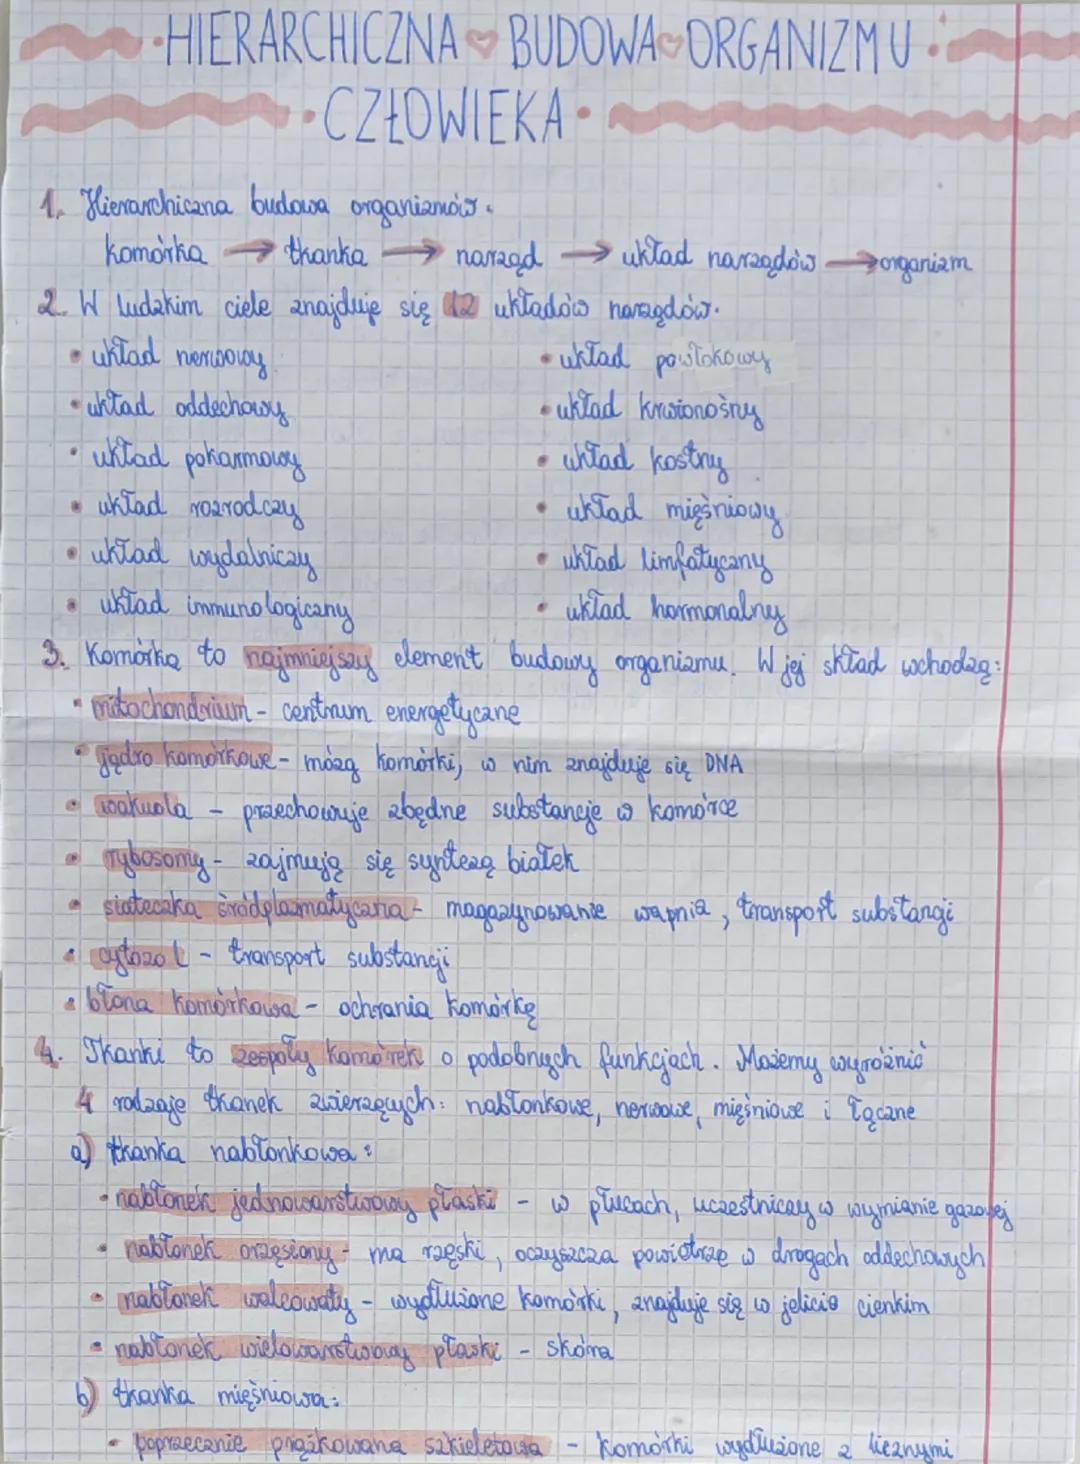 HIERARCHICZNA BUDOWA ORGANIZMU
CZŁOWIEKA
1. Hierarchiczna budowa organizmów.
komórka → tkanka → narząd → układ narządów → organizm
2. W ludzkim ciele znajduje się 12 układów narządów.
• układ nerwowy
• układ oddechowy
• układ pokarmowy
• układ rozrodczy
• układ wydalniczy
• układ immunologiczny
• układ powłokowy
• układ krwionośny
• układ kostny
• układ mięśniowy
• układ limfatyczny
• układ hormonalny
3. Komórka to najmniejszy element budowy organizmu. W jej skład wchodzą:
• mitochondrium - centrum energetyczne
• jądro komórkowe - mózg komórki, w nim znajduje się DNA
• wakuola - przechowuje zbędne substancje w komórce
• rybosomy - zajmują się syntezą białek
• siateczka śródplazmatyczna - magazynowanie wapnia, transport substancji
• cytozol - transport substancji
• błona komórkowa - ochrania komórkę
4. Tkanki to zespoły komórek o podobnych funkcjach. Możemy wyróżnić
4 rodzaje tkanek zwierzęcych: nabłonkowe, nerwowe, mięśniowe i łączne
a) tkanka nabłonkowa:
• nabłonek jednowarstwowy płaski - w płucach, uczestniczy w wymianie gazowej
• nabłonek orzęsiony - ma rzęski, oczyszcza powietrze w drogach oddechowych
• nabłonek walcowaty - wydłużone komórki, znajduje się w jelicie cienkim
• nabłonek wielowarstwowy płaski - skóra
b) tkanka mięśniowa:
• poprzecznie prążkowana szkieletowa - komórki wydłużone z licznymi